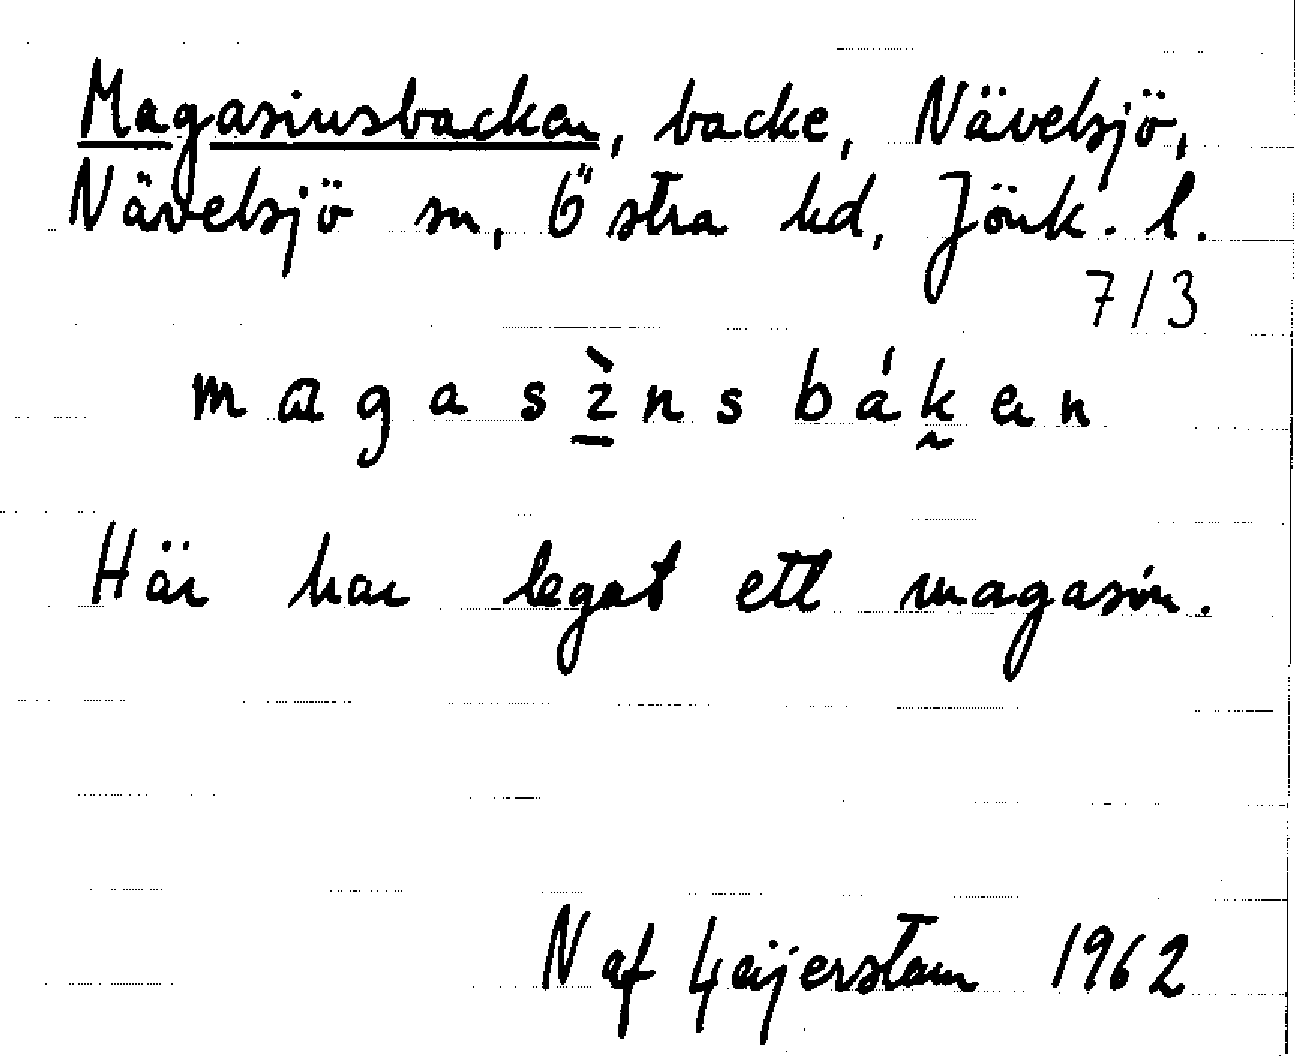 Magasinsbacken, backe, Nävelsjö,
Nävelsjö sn, Östra hd, Jönk. l.
7/3
magasìnsbákan
Här har legat ett magasin.
N af Geijerstam 1962